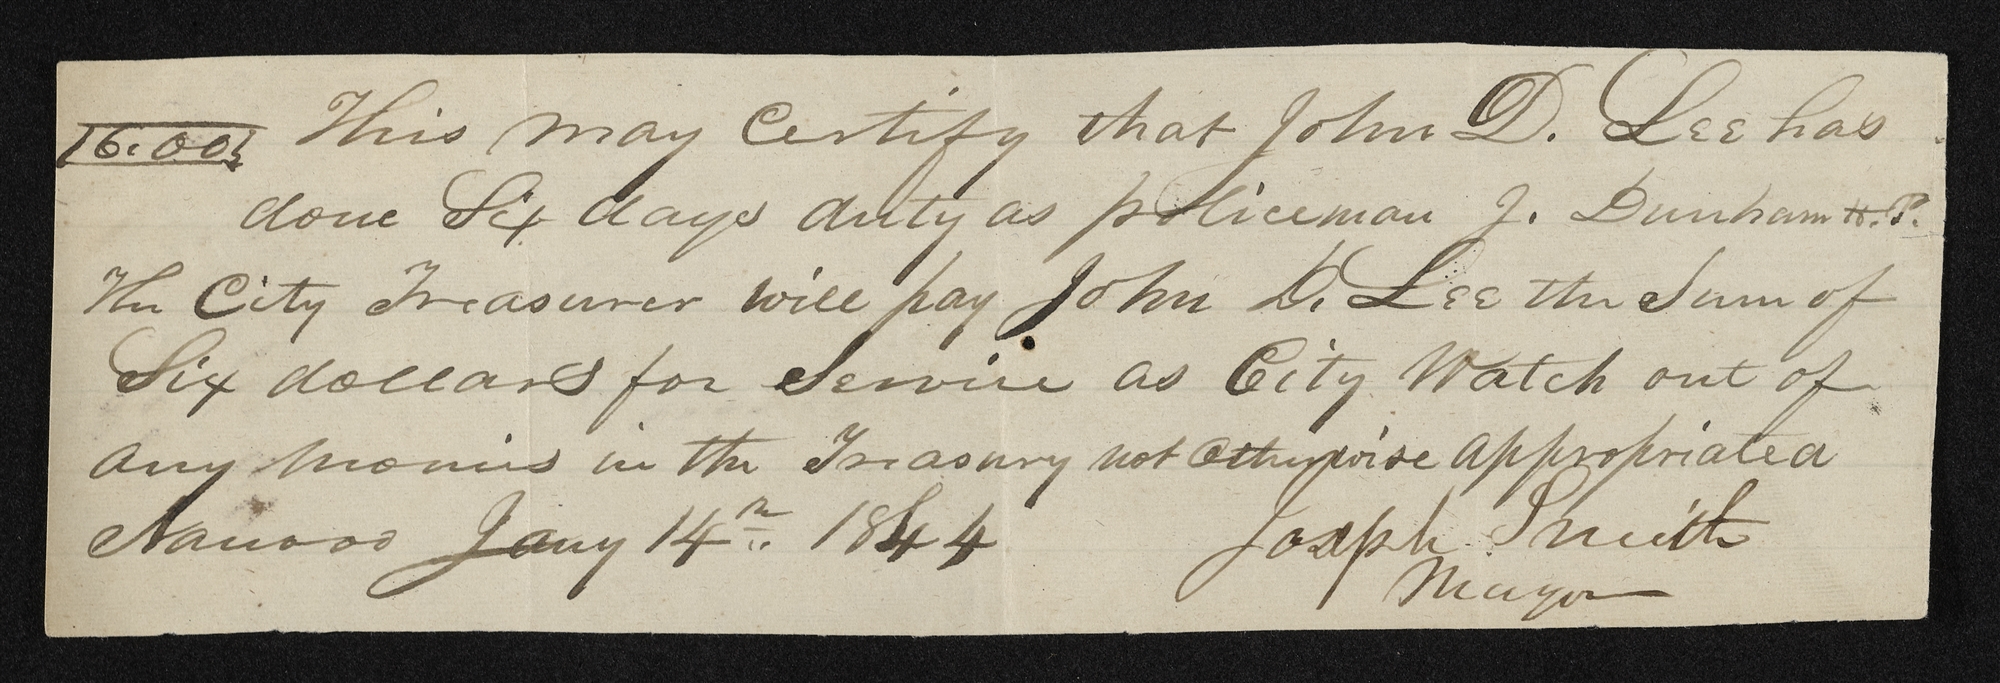 $6.00 This may Certify that John D. Lee has
done Six days duty as policeman J. Dunham H.P.
The City Treasurer will pay John D. Lee the Sum of
Six dollars for Service as City Watch out of
any monies in the Treasury not Otherwise appropriated
Nauvoo Jany 14th 1844 Joseph Smith
Mayor